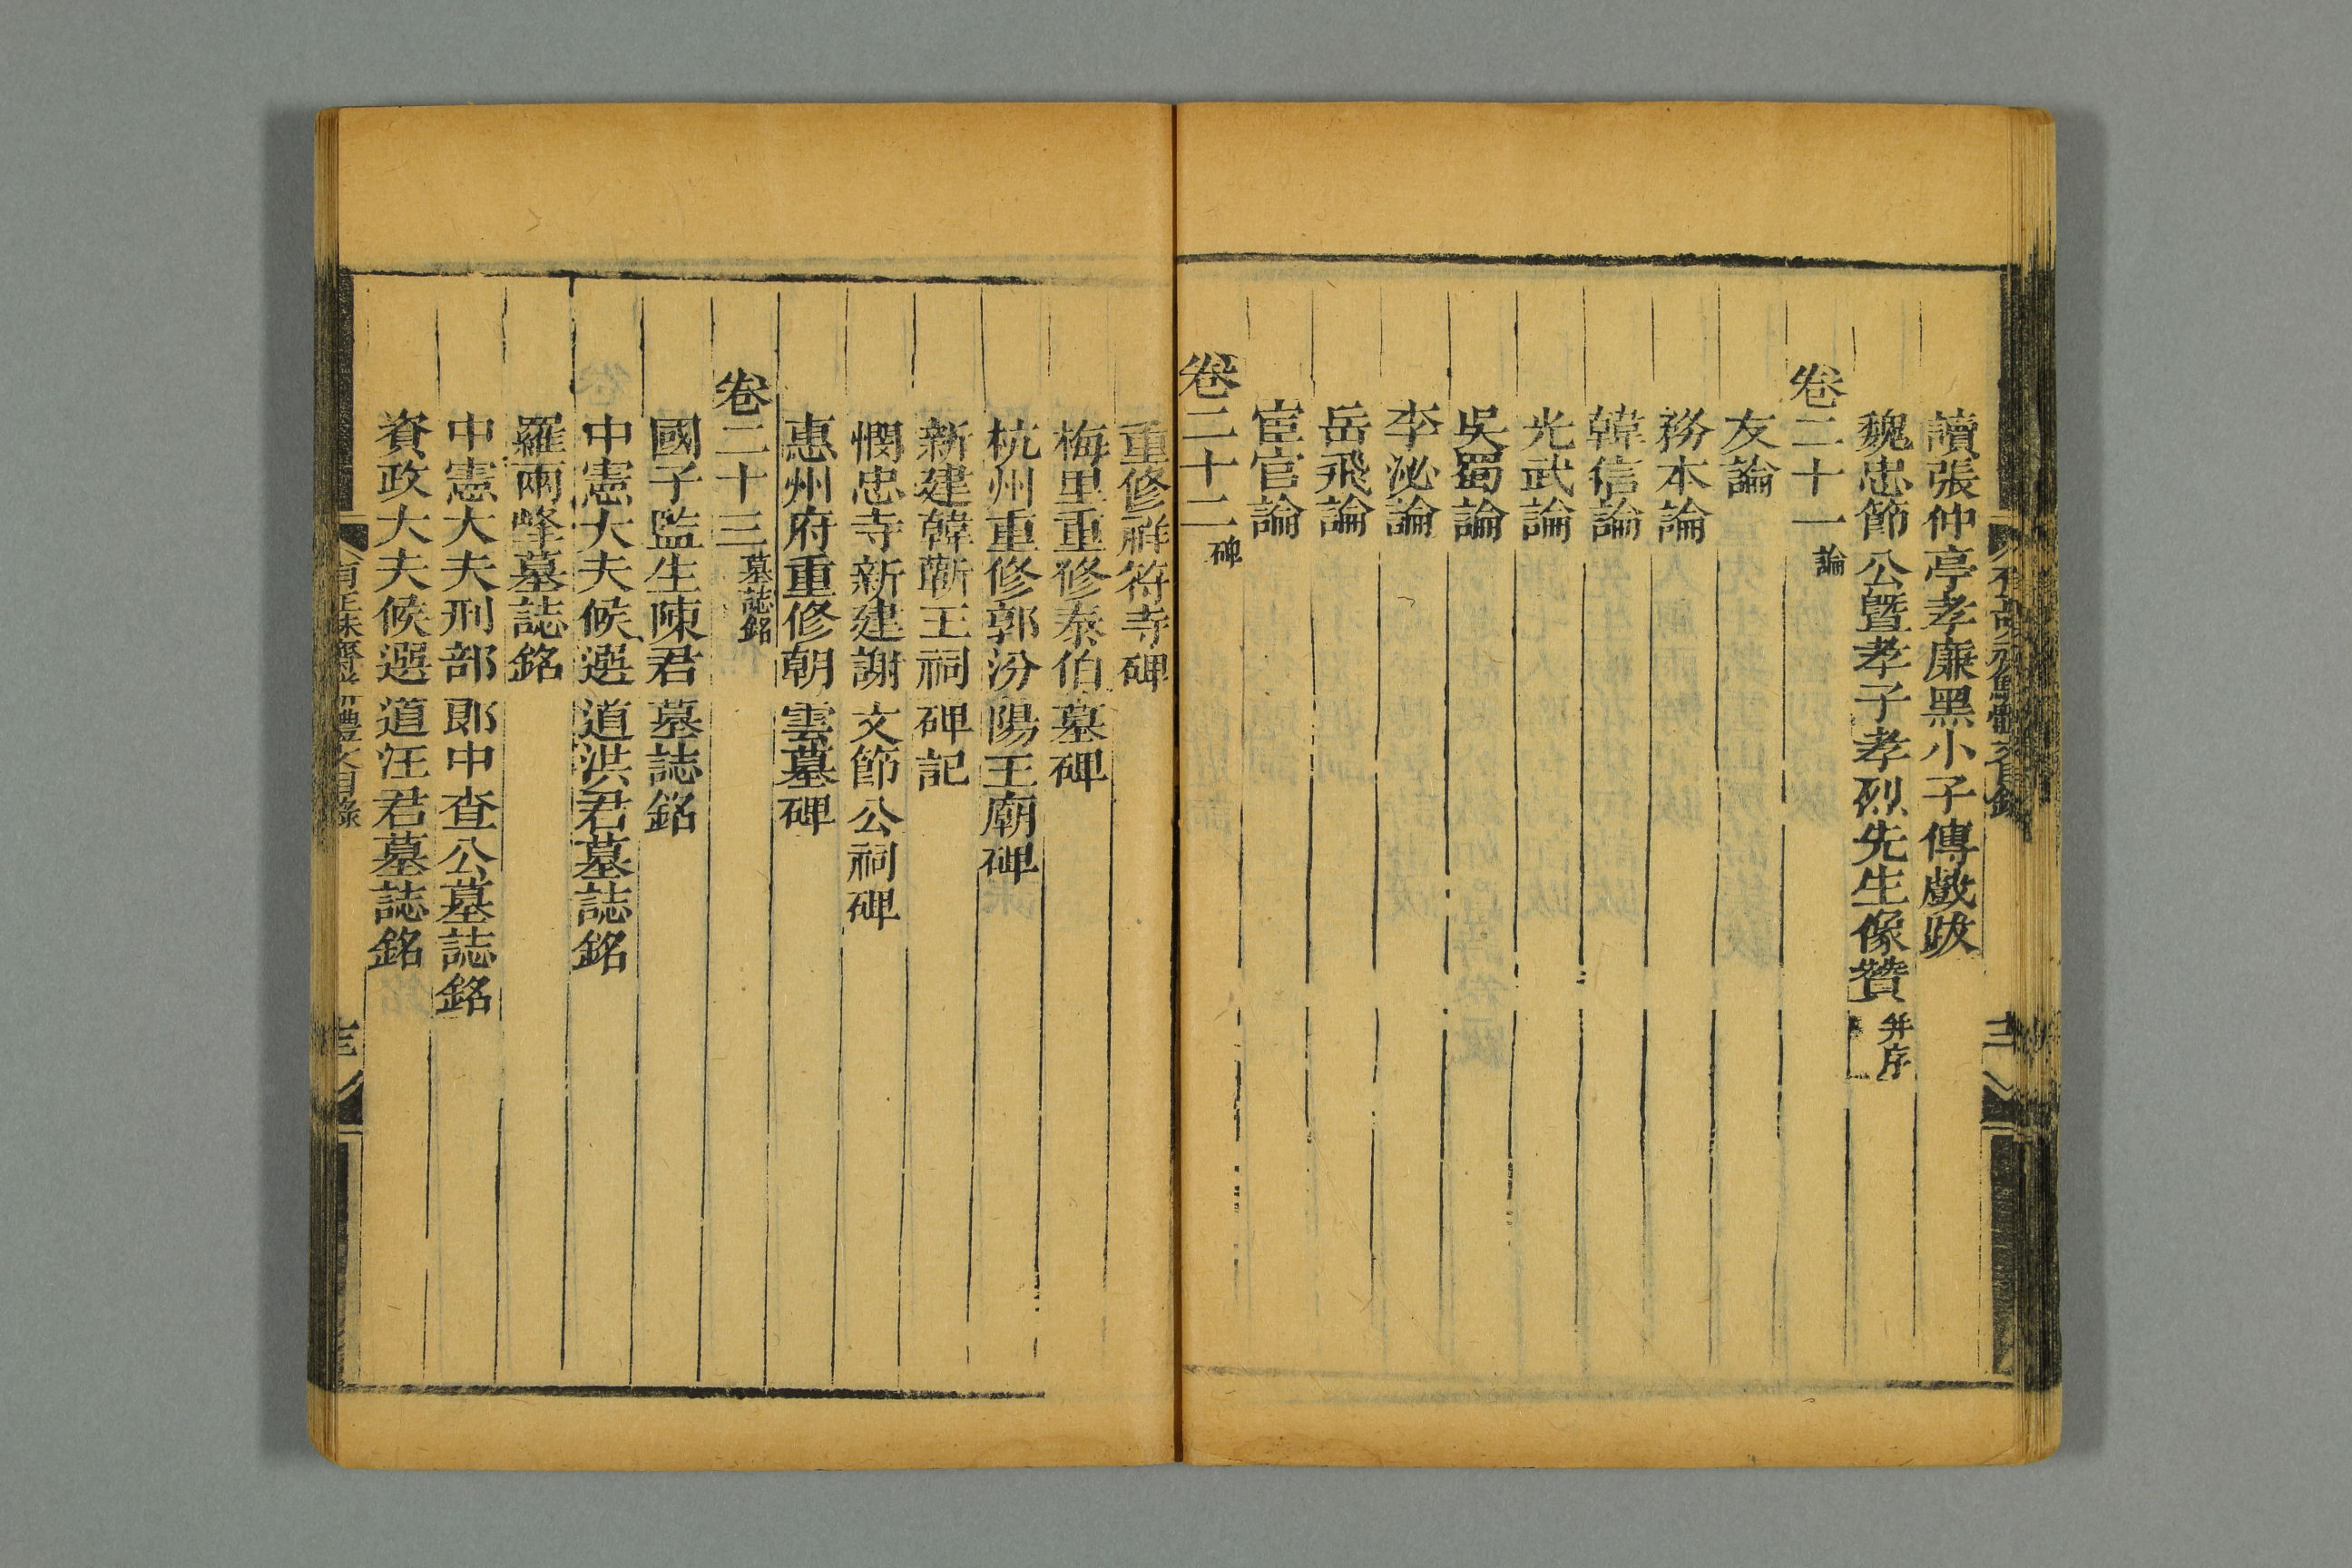 讀張仲亭孝廉黑小子傳戲跋
魏忠節公曁孝子孝烈先生像贊 并序
卷二十一 論
友論
務本論
韓信論
光武論
吳蜀論
李泌論
岳飛論
宦官論
卷二十二 碑
重修祥符寺碑
梅里重修泰伯墓碑
杭州重修郭汾陽王廟碑
新建韓蘄王祠碑記
憫忠寺新建謝文節公祠碑
惠州府重修朝雲墓碑
卷二十三 墓誌銘
國子監生陳君墓誌銘
中憲大夫候選道洪君墓誌銘
羅兩峰墓誌銘
中憲大夫刑部郎中查公墓誌銘
資政大夫候選道汪君墓誌銘